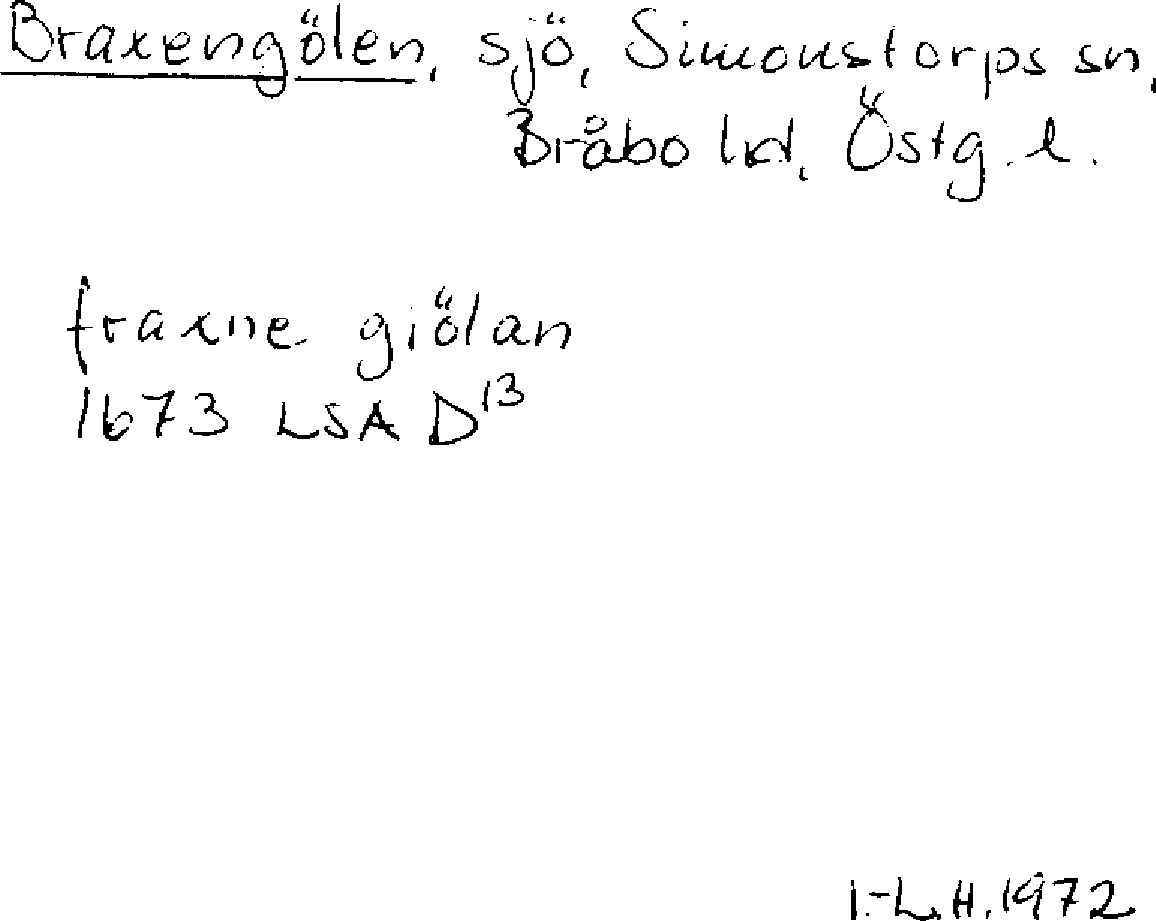 Braxengölen, sjö, Simonstorps sn,
Bråbo hd, Östg. l.
fraxne giölan
1673 LSA D13
I.-L.H. 1972